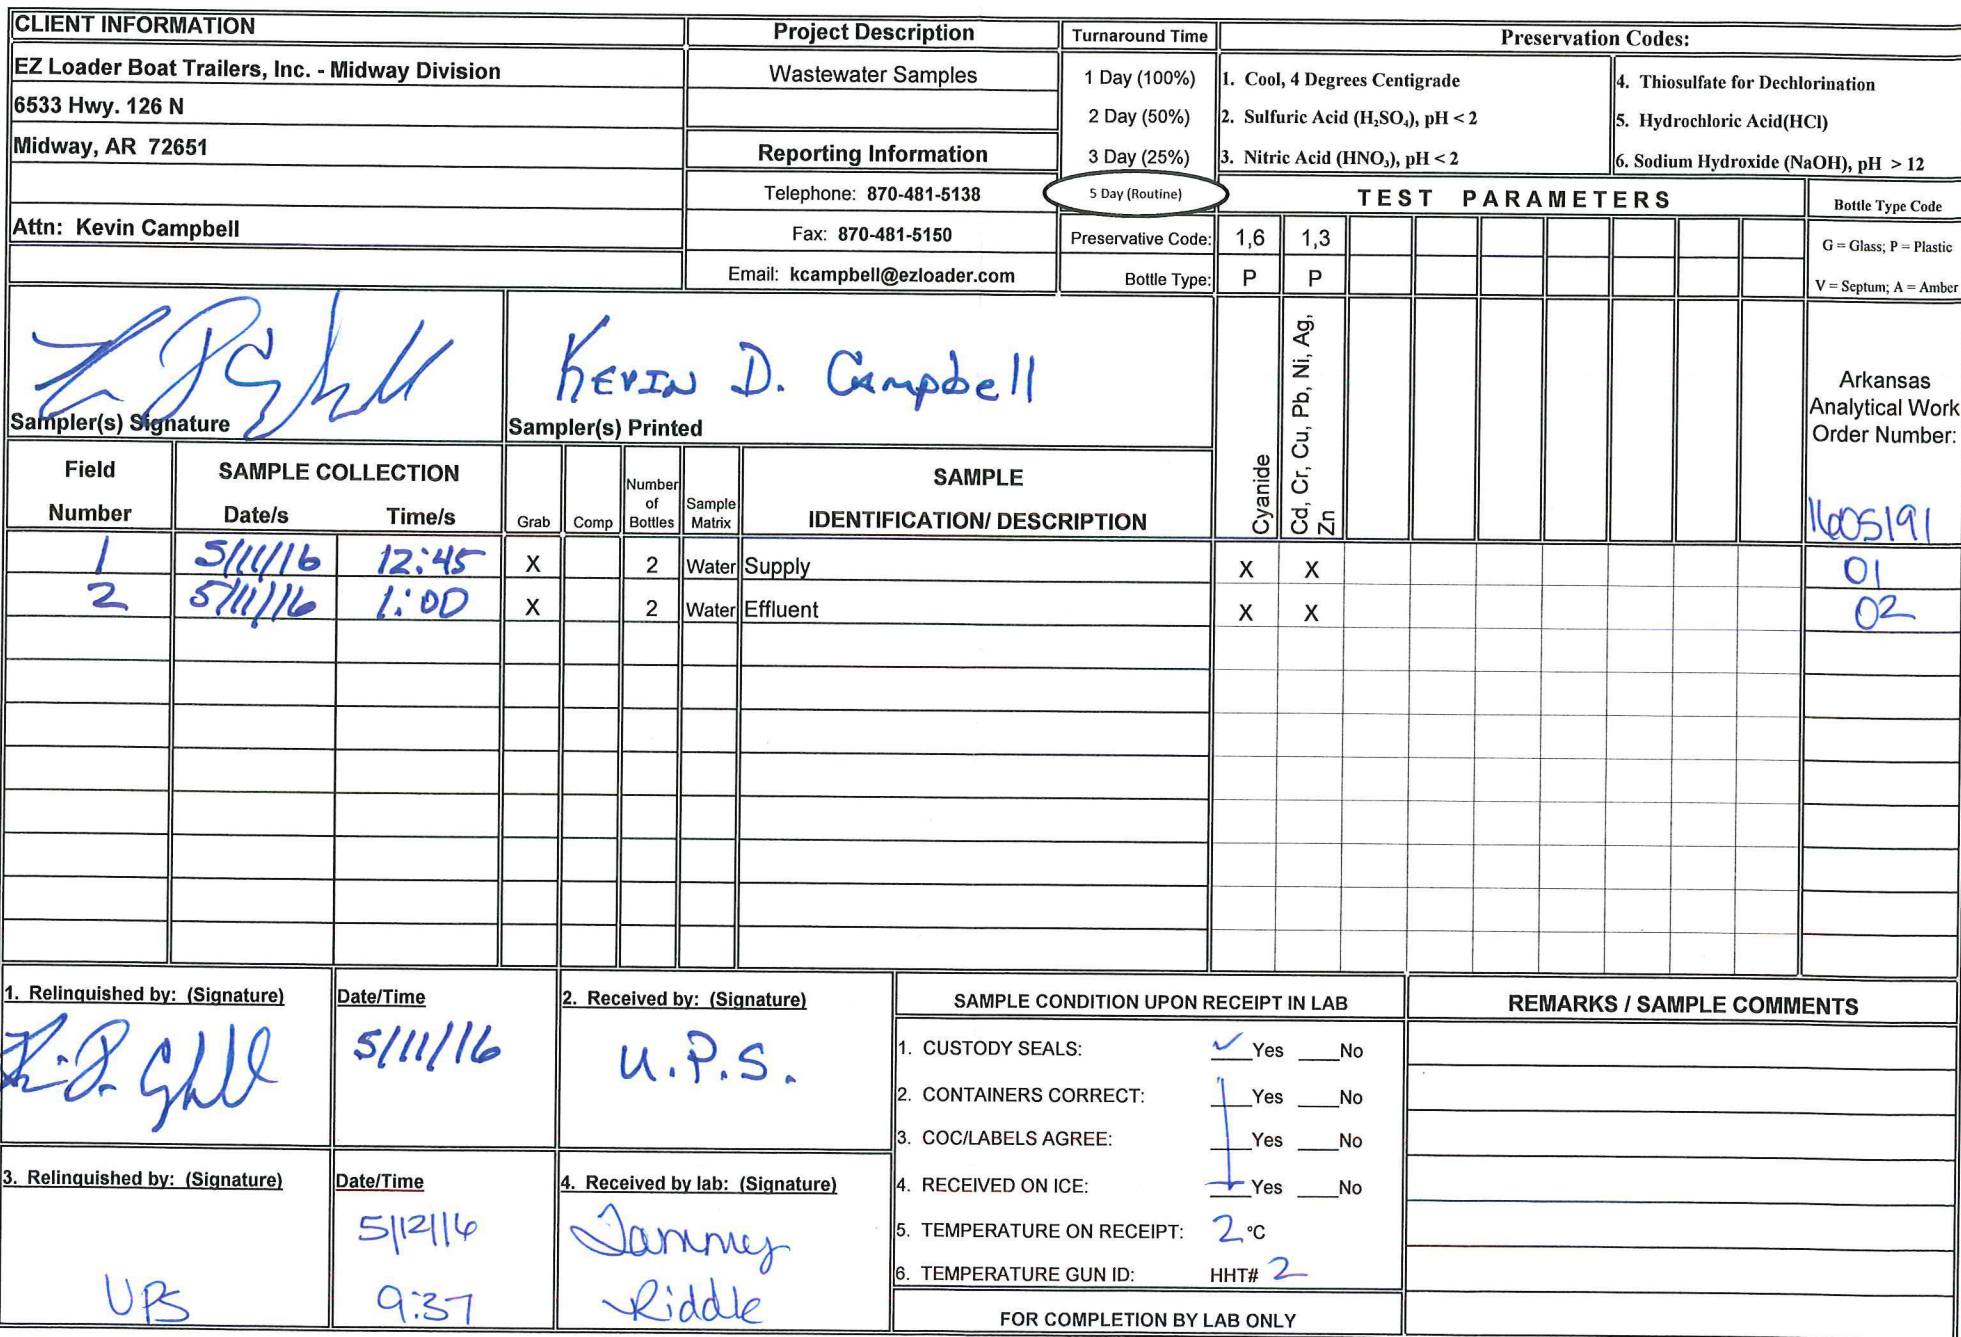 CLIENT INFORMATION
EZ Loader Boat Trailers, Inc. - Midway Division
6533 Hwy. 126 N
Midway, AR 72651
Attn: Kevin Campbell
Project Description
Wastewater Samples
Reporting Information
Telephone: 870-481-5138
Fax: 870-481-5150
Email: kcampbell@ezloader.com
Turnaround Time
1 Day (100%)
2 Day (50%)
3 Day (25%)
5 Day (Routine)
Preservation Codes:
1. Cool, 4 Degrees Centigrade
2. Sulfuric Acid (H₂SO₄), pH < 2
3. Nitric Acid (HNO₃), pH < 2
4. Thiosulfate for Dechlorination
5. Hydrochloric Acid(HCl)
6. Sodium Hydroxide (NaOH), pH > 12
TEST PARAMETERS
Bottle Type Code
G = Glass; P = Plastic
V = Septum; A = Amber
Preservative Code: 1,6 1,3
Bottle Type: P P
Sampler(s) Signature
KEVIN D. Campbell
Sampler(s) Printed
Cyanide
Cd, Cr, Cu, Pb, Ni, Ag,
Zn
Arkansas
Analytical Work
Order Number:
1605191
Field
Number
SAMPLE COLLECTION
Date/s Time/s
Grab
Comp
Number
of
Bottles
Sample
Matrix
SAMPLE
IDENTIFICATION/ DESCRIPTION
1 5/11/16 12:45 X 2 Water Supply X X 01
2 5/11/16 1:00 X 2 Water Effluent X X 02
1. Relinquished by: (Signature)
Date/Time
5/11/16
2. Received by: (Signature)
U.P.S.
3. Relinquished by: (Signature)
UPS
Date/Time
5/12/16
9:37
4. Received by lab: (Signature)
Tammy
Riddle
SAMPLE CONDITION UPON RECEIPT IN LAB
1. CUSTODY SEALS: ✓ Yes ___No
2. CONTAINERS CORRECT: ___Yes ___No
3. COC/LABELS AGREE: ___Yes ___No
4. RECEIVED ON ICE: ___Yes ___No
5. TEMPERATURE ON RECEIPT: 2 °C
6. TEMPERATURE GUN ID: HHT# 2
FOR COMPLETION BY LAB ONLY
REMARKS / SAMPLE COMMENTS